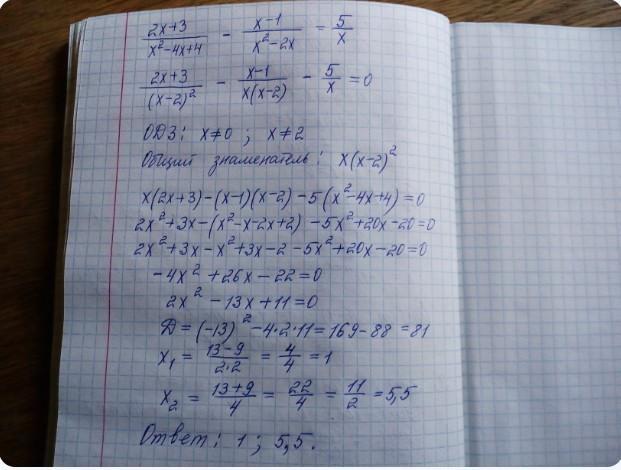 (2x+3)/(x²-4x+4) - (x-1)/(x²-2x) = 5/x
(2x+3)/(x-2)² - (x-1)/(x(x-2)) - 5/x = 0
ОДЗ: x≠0 ; x≠2
Общий знаменатель: x(x-2)²
x(2x+3)-(x-1)(x-2)-5(x²-4x+4)=0
2x²+3x-(x²-x-2x+2)-5x²+20x-20=0
2x²+3x-x²+3x-2-5x²+20x-20=0
-4x²+26x-22=0
2x²-13x+11=0
D=(-13)²-4·2·11=169-88=81
x₁ = (13-9)/(2·2) = 4/4 = 1
x₂ = (13+9)/4 = 22/4 = 11/2 = 5,5
Ответ: 1; 5,5.